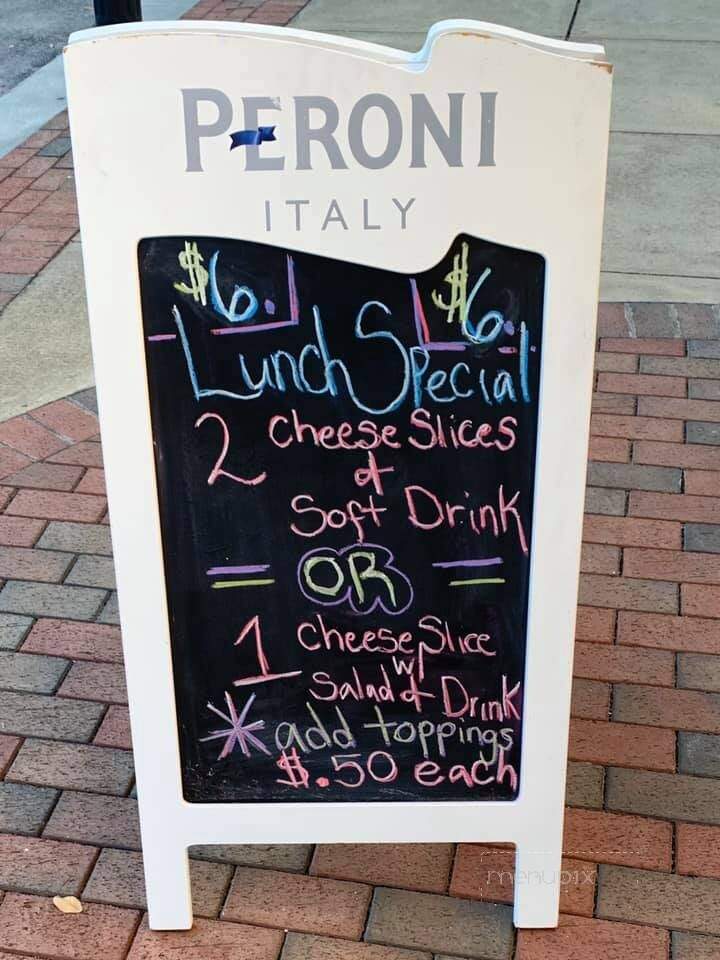 PERONI
ITALY
$6. $6.
Lunch Special
2 Cheese Slices
&
Soft Drink
= OR =
1 Cheese Slice
w/
Salad & Drink
* add toppings
$.50 each
menupix